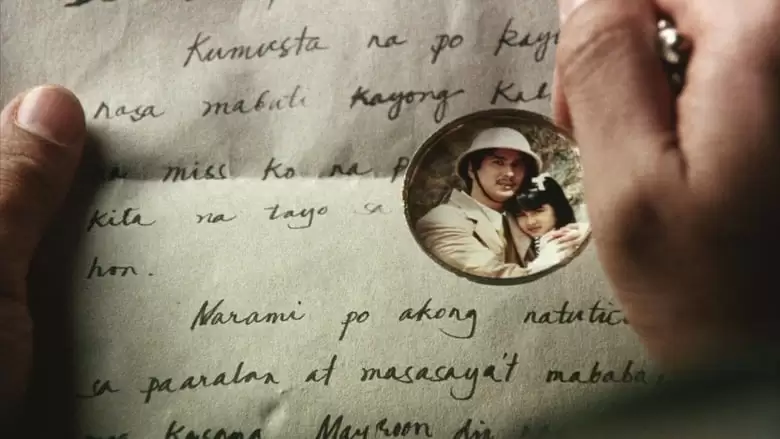 Kumusta na po kayo
nasa mabuti kayong kal
miss ko na p
kita na tayo sa
hon.
Narami po akong natutu
sa paaralan at masasaya't mababa
kasama Mayroon din